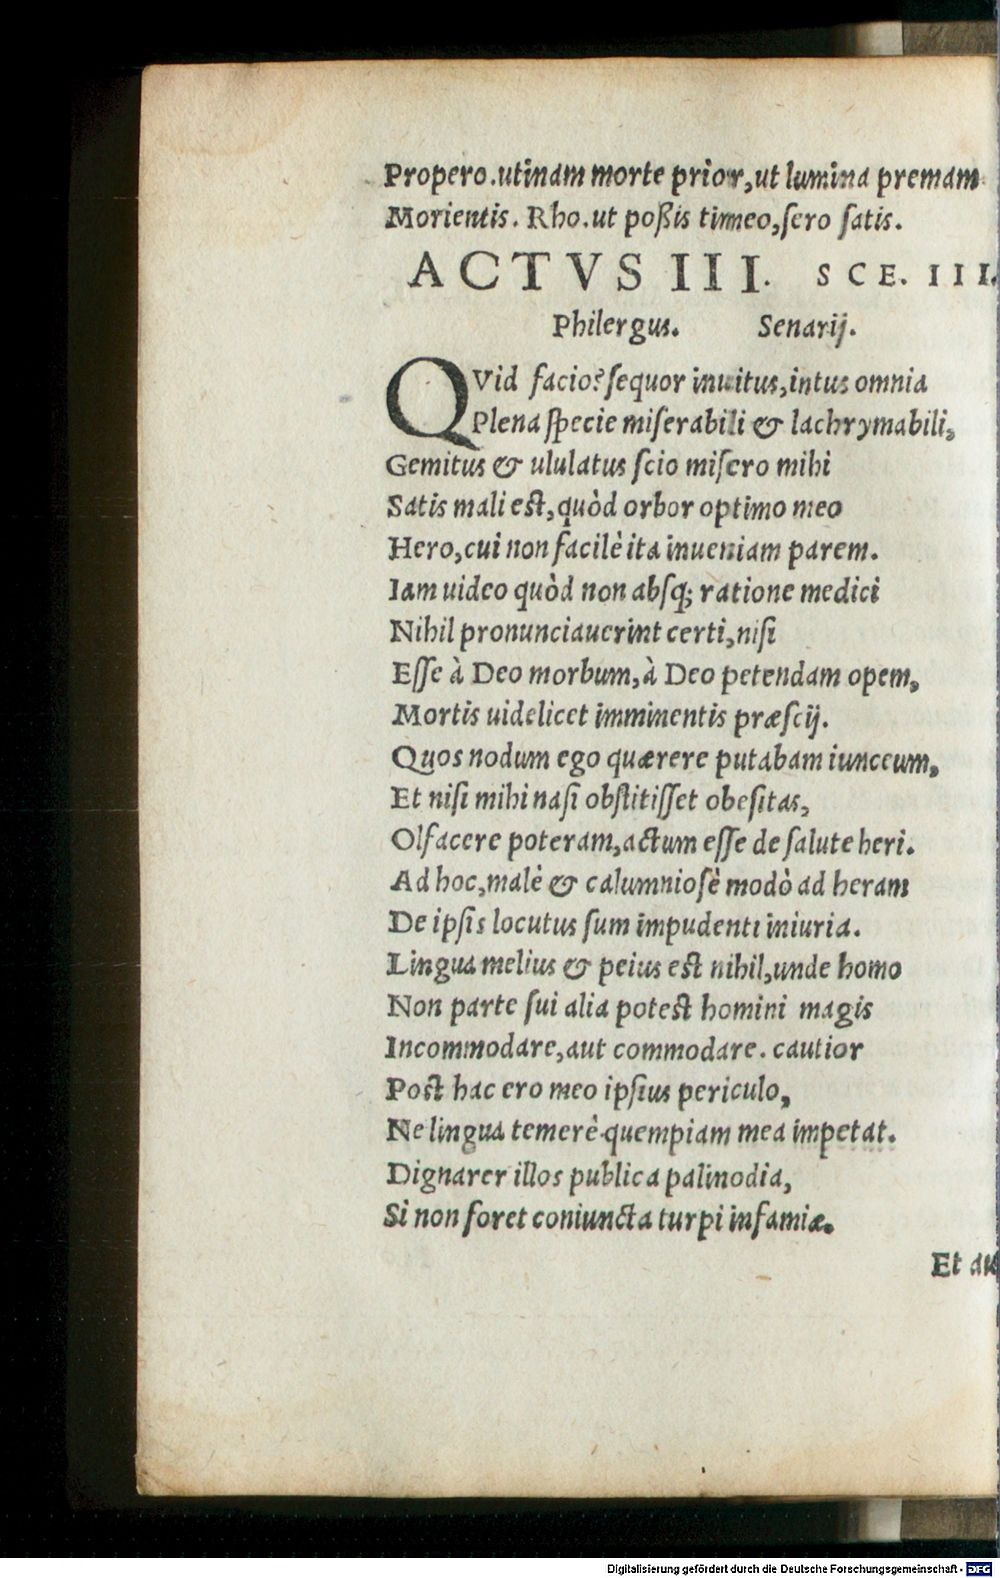 Propero.utinam morte prior,ut lumina premam
Morientis. Rho.ut poßis timeo,sero satis.
ACTVS III. SCE. III.
Philergus. Senarij.
QVid facio?sequor inuitus,intus omnia
Plena specie miserabili & lachrymabili,
Gemitus & ululatus scio misero mihi
Satis mali est,quòd orbor optimo meo
Hero,cui non facilè ita inueniam parem.
Iam uideo quòd non absq; ratione medici
Nihil pronunciauerint certi,nisi
Esse à Deo morbum,à Deo petendam opem,
Mortis uidelicet imminentis præscij.
Quos nodum ego quærere putabam iunceum,
Et nisi mihi nasi obstitisset obesitas,
Olfacere poteram,actum esse de salute heri.
Ad hoc,malè & calumniosè modò ad heram
De ipsis locutus sum impudenti iniuria.
Lingua melius & peius est nihil,unde homo
Non parte sui alia potest homini magis
Incommodare,aut commodare. cautior
Post hac ero meo ipsius periculo,
Ne lingua temerè quempiam mea impetat.
Dignarer illos publica palinodia,
Si non foret coniuncta turpi infamiæ.
Et au
Digitalisierung gefördert durch die Deutsche Forschungsgemeinschaft - DFG